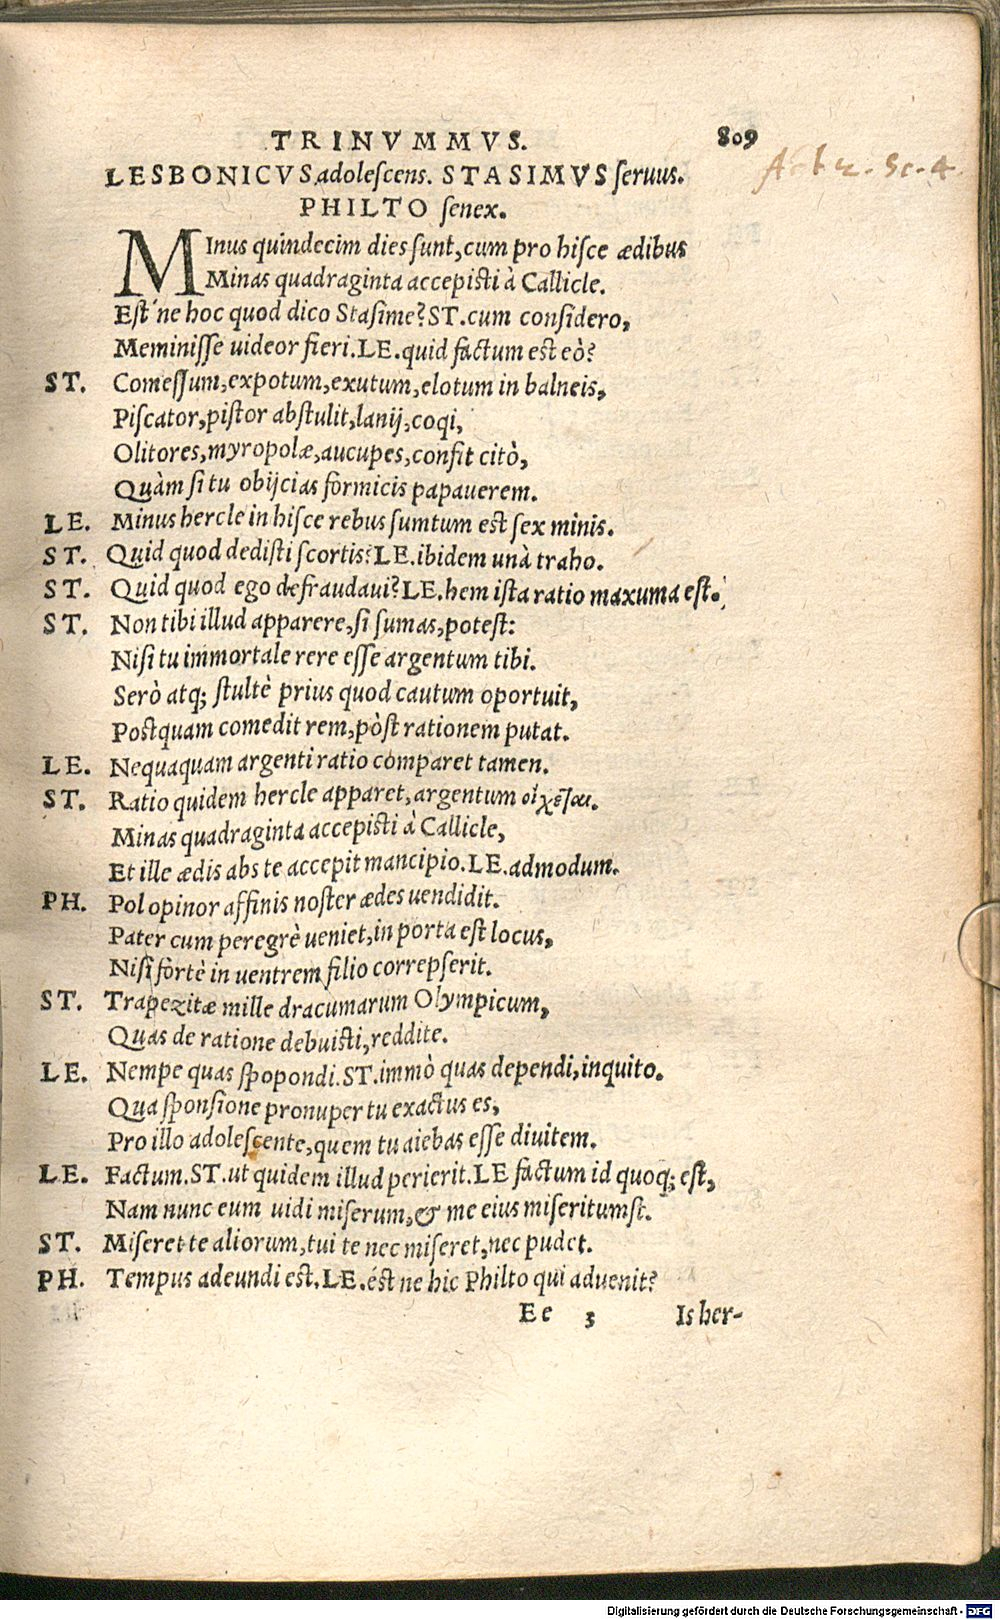 TRINVMMVS. 809
Act 2. Sc. 4.
LESBONICVS adoleſcens. STASIMVS ſeruus.
PHILTO ſenex.
MInus quindecim dies ſunt, cum pro hiſce ædibus
Minas quadraginta accepiſti à Callicle.
Eſt'ne hoc quod dico Staſime? ST. cum conſidero,
Meminiſſe uideor fieri. LE. quid factum eſt eò?
ST. Comeſſum, expotum, exutum, elotum in balneis,
Piſcator, piſtor abſtulit, lanij, coqi,
Olitores, myropolæ, aucupes, confit citò,
Quàm ſi tu obijcias formicis papauerem.
LE. Minus hercle in hiſce rebus ſumtum eſt ſex minis.
ST. Quid quod dediſti ſcortis? LE. ibidem unà traho.
ST. Quid quod ego defraudaui? LE. hem iſta ratio maxuma eſt.
ST. Non tibi illud apparere, ſi ſumas, poteſt:
Niſi tu immortale rere eſſe argentum tibi.
Serò atq; ſtultè prius quod cautum oportuit,
Poſtquam comedit rem, pòſt rationem putat.
LE. Nequaquam argenti ratio comparet tamen.
ST. Ratio quidem hercle apparet, argentum οἴχεται.
Minas quadraginta accepiſti à Callicle,
Et ille ædis abs te accepit mancipio. LE. admodum.
PH. Pol opinor affinis noſter ædes uendidit.
Pater cum peregrè ueniet, in porta eſt locus,
Niſi fortè in uentrem filio correpſerit.
ST. Trapezitæ mille dracumarum Olympicum,
Quas de ratione debuiſti, reddite.
LE. Nempe quas ſpopondi. ST. immò quas dependi, inquito.
Qua ſponſione pronuper tu exactus es,
Pro illo adoleſcente, quem tu aiebas eſſe diuitem.
LE. Factum. ST. ut quidem illud perierit. LE factum id quoq; eſt,
Nam nunc eum uidi miſerum, & me eius miſeritumſt.
ST. Miſeret te aliorum, tui te nec miſeret, nec pudet.
PH. Tempus adeundi eſt. LE. éſt ne hic Philto qui aduenit?
Ee 3 Is her-
Digitalisierung gefördert durch die Deutsche Forschungsgemeinschaft - DFG